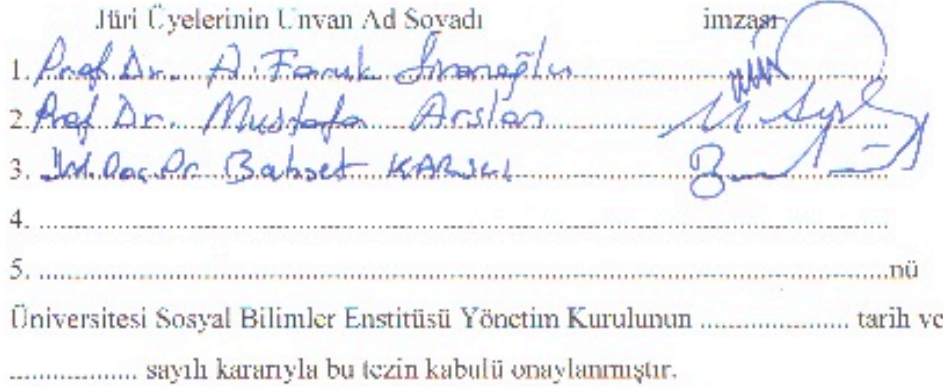 Jüri Üyelerinin Unvan Ad Soyadı imzası
1. Prof. Dr. A. Faruk
2. Prof. Dr. Mustafa Arslan
3. Yrd. Doç. Dr. Bahset KARSLI
4. ....................
5. .................... nü
Üniversitesi Sosyal Bilimler Enstitüsü Yönetim Kurulunun .................... tarih ve
.................. sayılı kararıyla bu tezin kabulü onaylanmıştır.